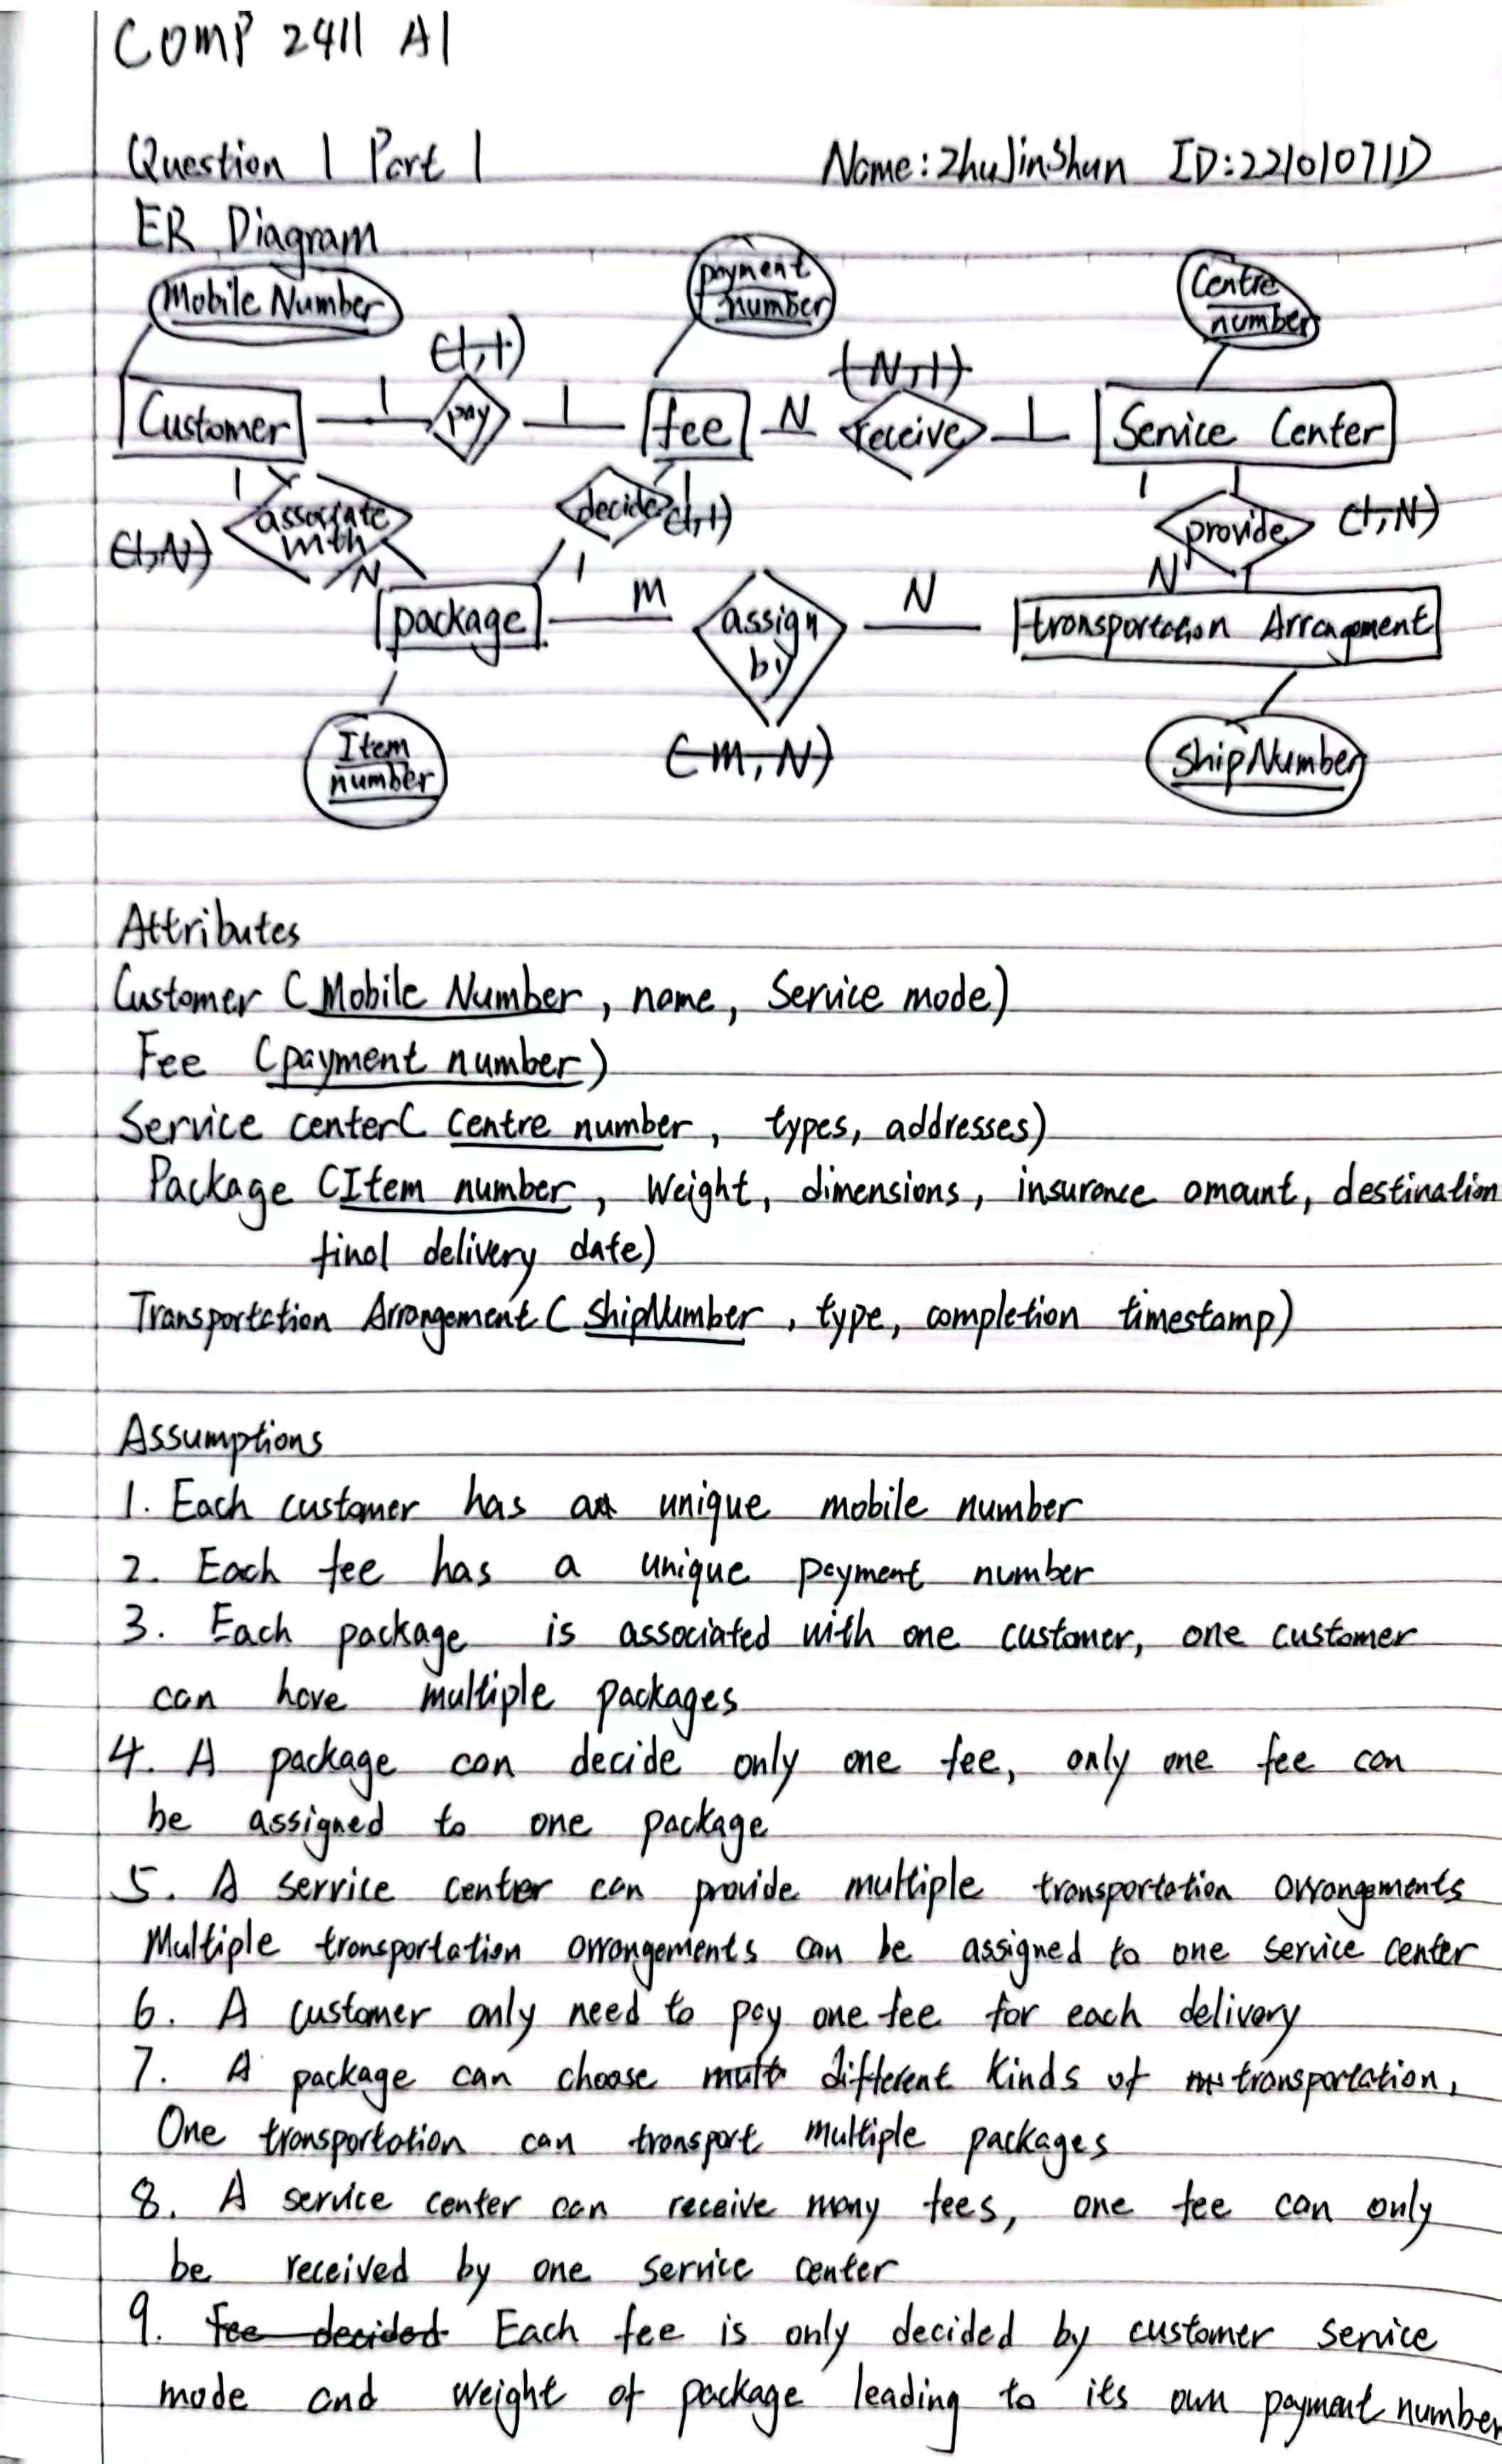 COMP 2411 A1
Question 1 Part 1 Name: ZhuJinShun ID: 22101071D
ER Diagram
Mobile Number payment number Centre number
(1,1) (N,1)
Customer 1 pay 1 fee N receive 1 Service Center
1 associate with N (1,N) decide 1 (1,1) 1 provide N (1,N)
package M assign by N transportation Arrangement
(M,N)
Item number ShipNumber
Attributes
Customer (Mobile Number, name, Service mode)
Fee (payment number)
Service center( Centre number, types, addresses)
Package (Item number, Weight, dimensions, insurance amount, destination
final delivery date)
Transportation Arrangement ( ShipNumber, type, completion timestamp)
Assumptions
1. Each customer has a unique mobile number
2. Each fee has a unique payment number
3. Each package is associated with one customer, one customer
can have multiple packages
4. A package can decide only one fee, only one fee can
be assigned to one package
5. A service center can provide multiple transportation arrangements
Multiple transportation arrangements can be assigned to one service center
6. A customer only need to pay one fee for each delivery
7. A package can choose mult different kinds of transportation,
One transportation can transport multiple packages
8. A service center can receive many fees, one fee can only
be received by one service center
9. Fee decided Each fee is only decided by customer service
mode and weight of package leading to its own payment number